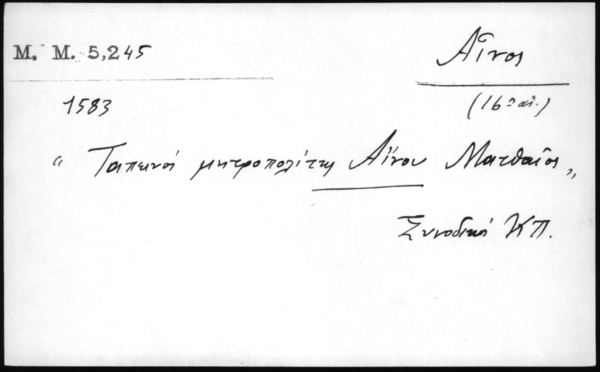 M. M. 5,245
Αἶνος
1583
(16ος αἰ.)
"Ταπεινὸς μητροπολίτης Αἴνου Ματθαῖος,,
Συνοδικὸ ΚΠ.